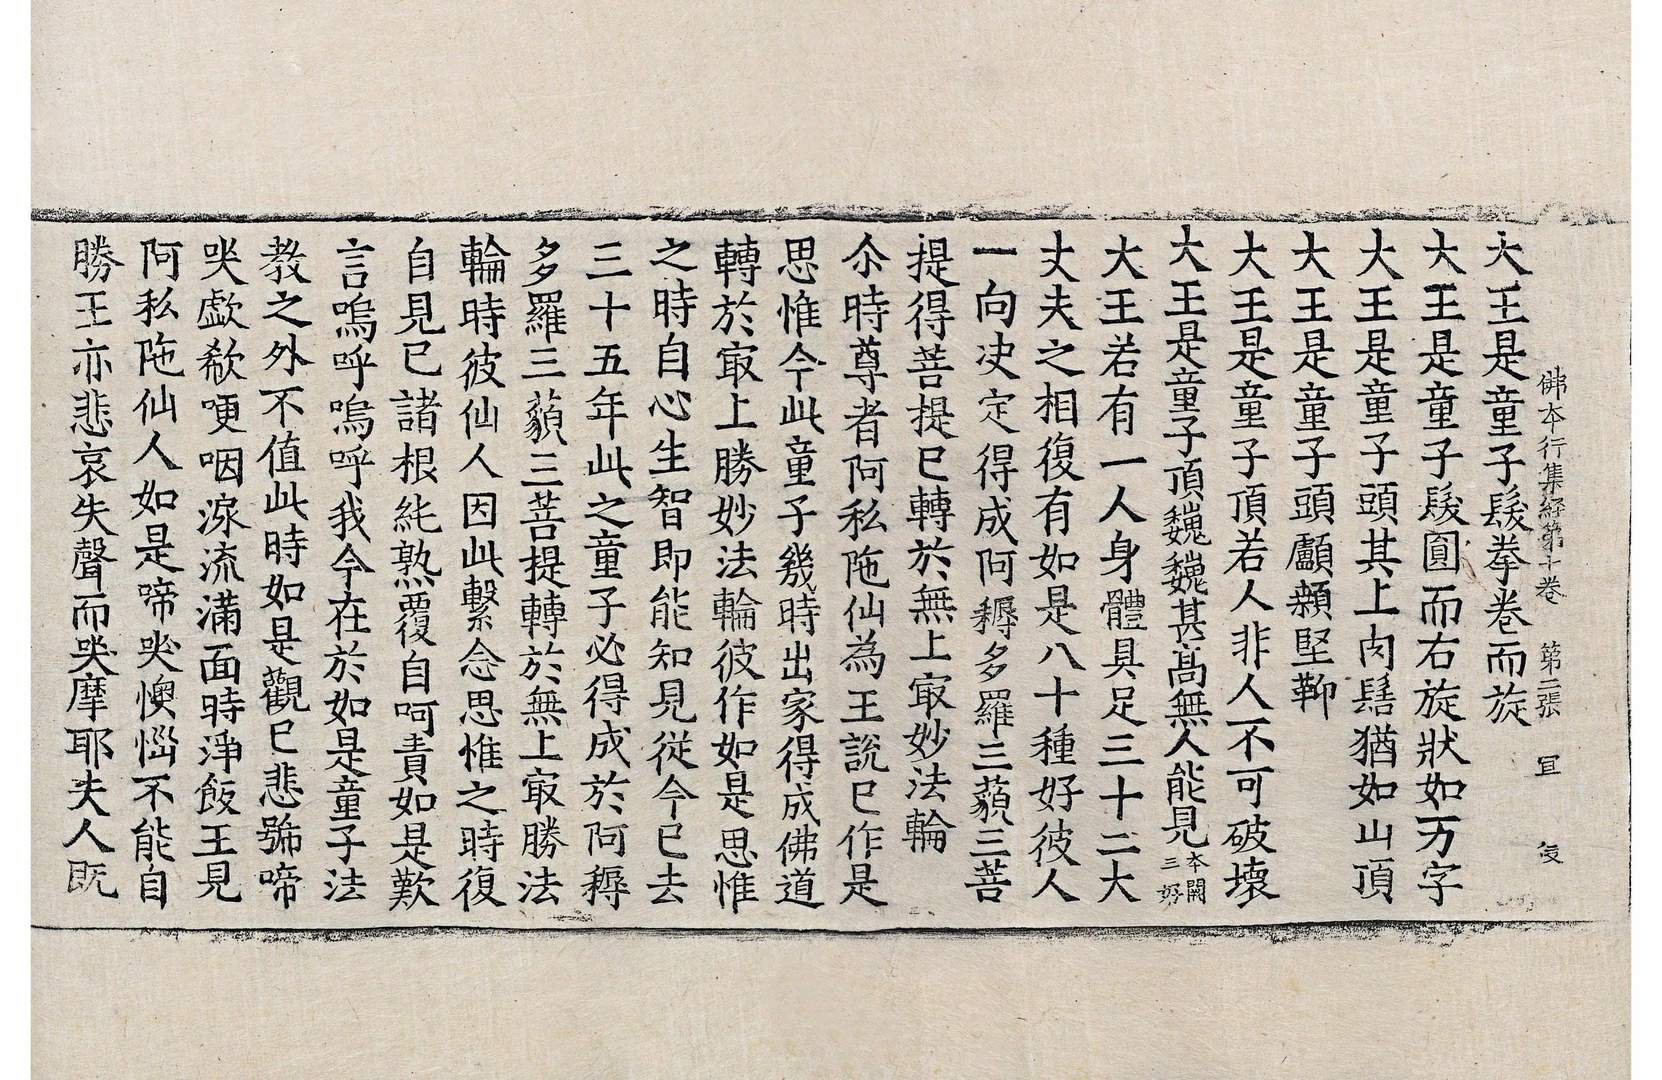 佛本行集経第十卷　第二張　宜　㑓
大王是童子髮拳卷而旋
大王是童子髮圓而右旋狀如万字
大王是童子頭其上肉髻猶如山頂
大王是童子頭顱顙堅鞕
大王是童子頂若人非人不可破壞
大王是童子頂巍巍甚髙無人能見本闕三好
大王若有一人身體具足三十二大
丈夫之相復有如是八十種好彼人
一向决定得成阿耨多羅三藐三菩
提得菩提已轉於無上㝡妙法輪
尒時尊者阿私陁仙為王說已作是
思惟今此童子幾時出家得成佛道
轉於㝡上勝妙法輪彼作如是思惟
之時自心生智即能知見從今已去
三十五年此之童子必得成於阿耨
多羅三藐三菩提轉於無上㝡勝法
輪時彼仙人因此繫念思惟之時復
自見已諸根純熟覆自呵責如是歎
言嗚呼嗚呼我今在於如是童子法
教之外不值此時如是觀已悲號啼
哭歔欷哽咽淚流滿面時淨飯王見
阿私陁仙人如是啼哭懊惱不能自
勝王亦悲哀失聲而哭摩耶夫人既